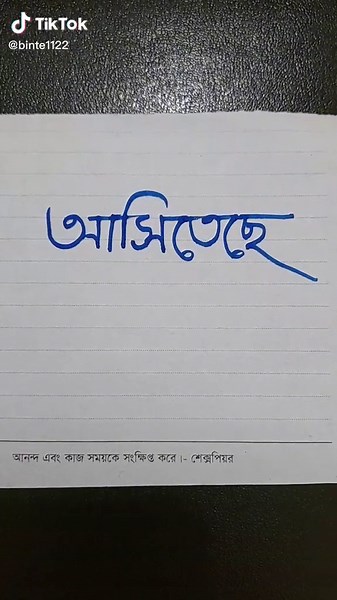 TikTok
@binte1122
আসিতেছে
আনন্দ এবং কাজ সময়কে সংক্ষিপ্ত করে।- শেক্সপিয়র